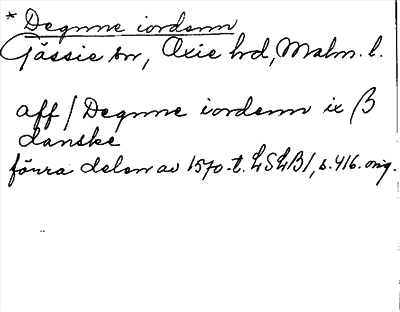 * Degnne iordenn
Gässie sn, Oxie hd, Malm. l.
aff / Degnne iordenn ix β
danske
förra delen av 1570-t. LSLB1, s. 416. orig.